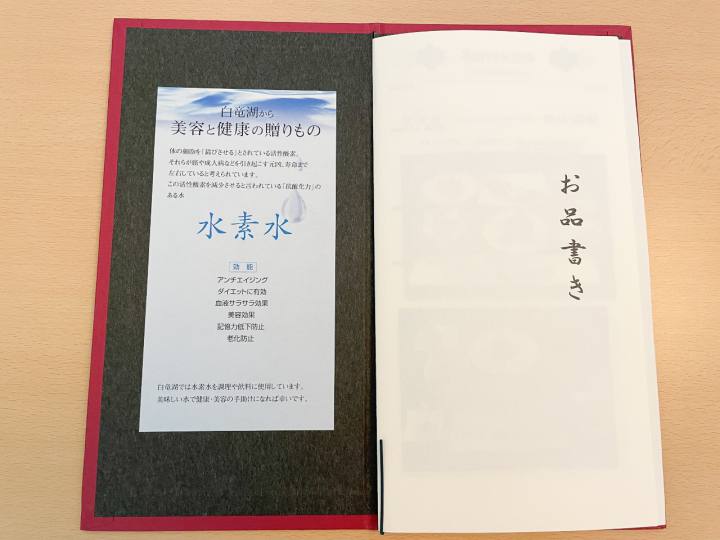 白竜湖から
美容と健康の贈りもの
体の細胞を「錆びさせる」とされている活性酸素。
それらが癌や成人病などを引き起こす元凶、寿命まで
左右していると考えられています。
この活性酸素を減少させると言われている「抗酸化力」の
ある水
水素水
効能
アンチエイジング
ダイエットに有効
血液サラサラ効果
美容効果
記憶力低下防止
老化防止
白竜湖では水素水を調理や飲料に使用しています。
美味しい水で健康・美容の手助けになれば幸いです。
お品書き